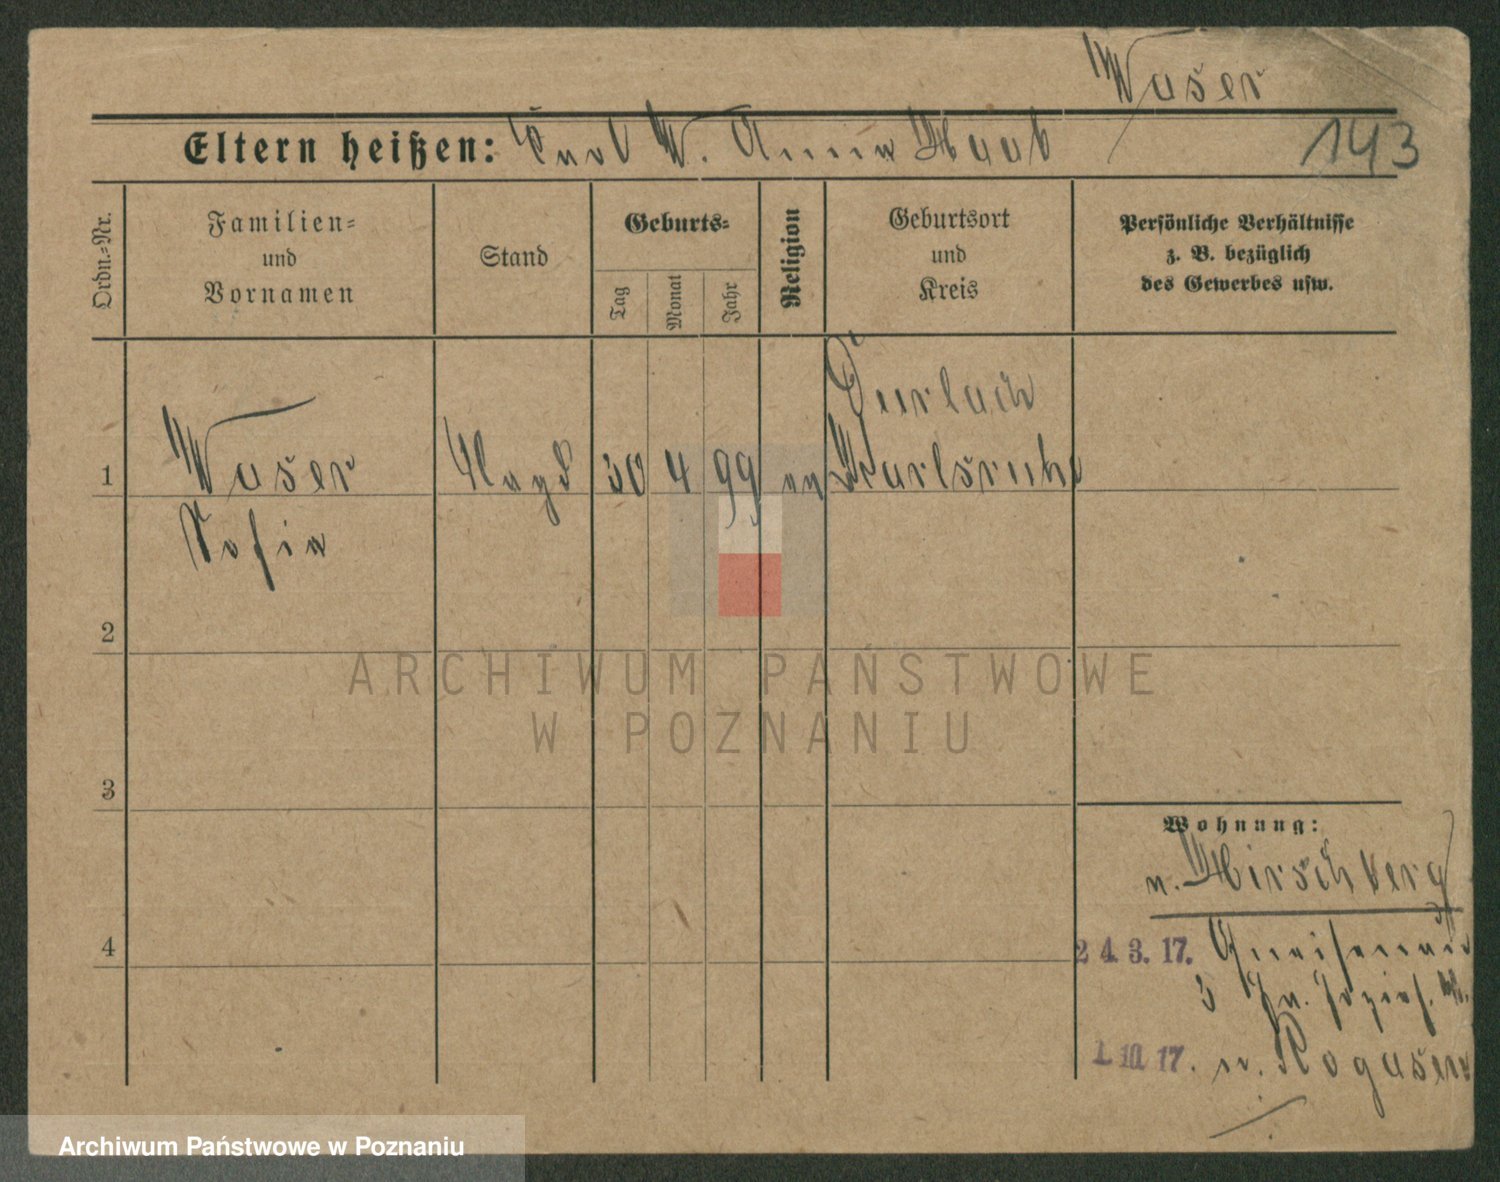 Waser
Eltern heißen: Karl W. Anna Haab
143
Ordn.-Nr.
Familien- und Vornamen
Stand
Geburts-
Tag
Monat
Jahr
Religion
Geburtsort und Kreis
Persönliche Verhältnisse
z. B. bezüglich
des Gewerbes usw.
Durlach
1 Waser Magd 30 4 99 ev Karlsruhe
Sofia
2
3
Wohnung:
n. Hirschberg
4
24. 3. 17. Gneisenau
3
1. 10. 17. n. Rogasen
ARCHIWUM PAŃSTWOWE
W POZNANIU
Archiwum Państwowe w Poznaniu